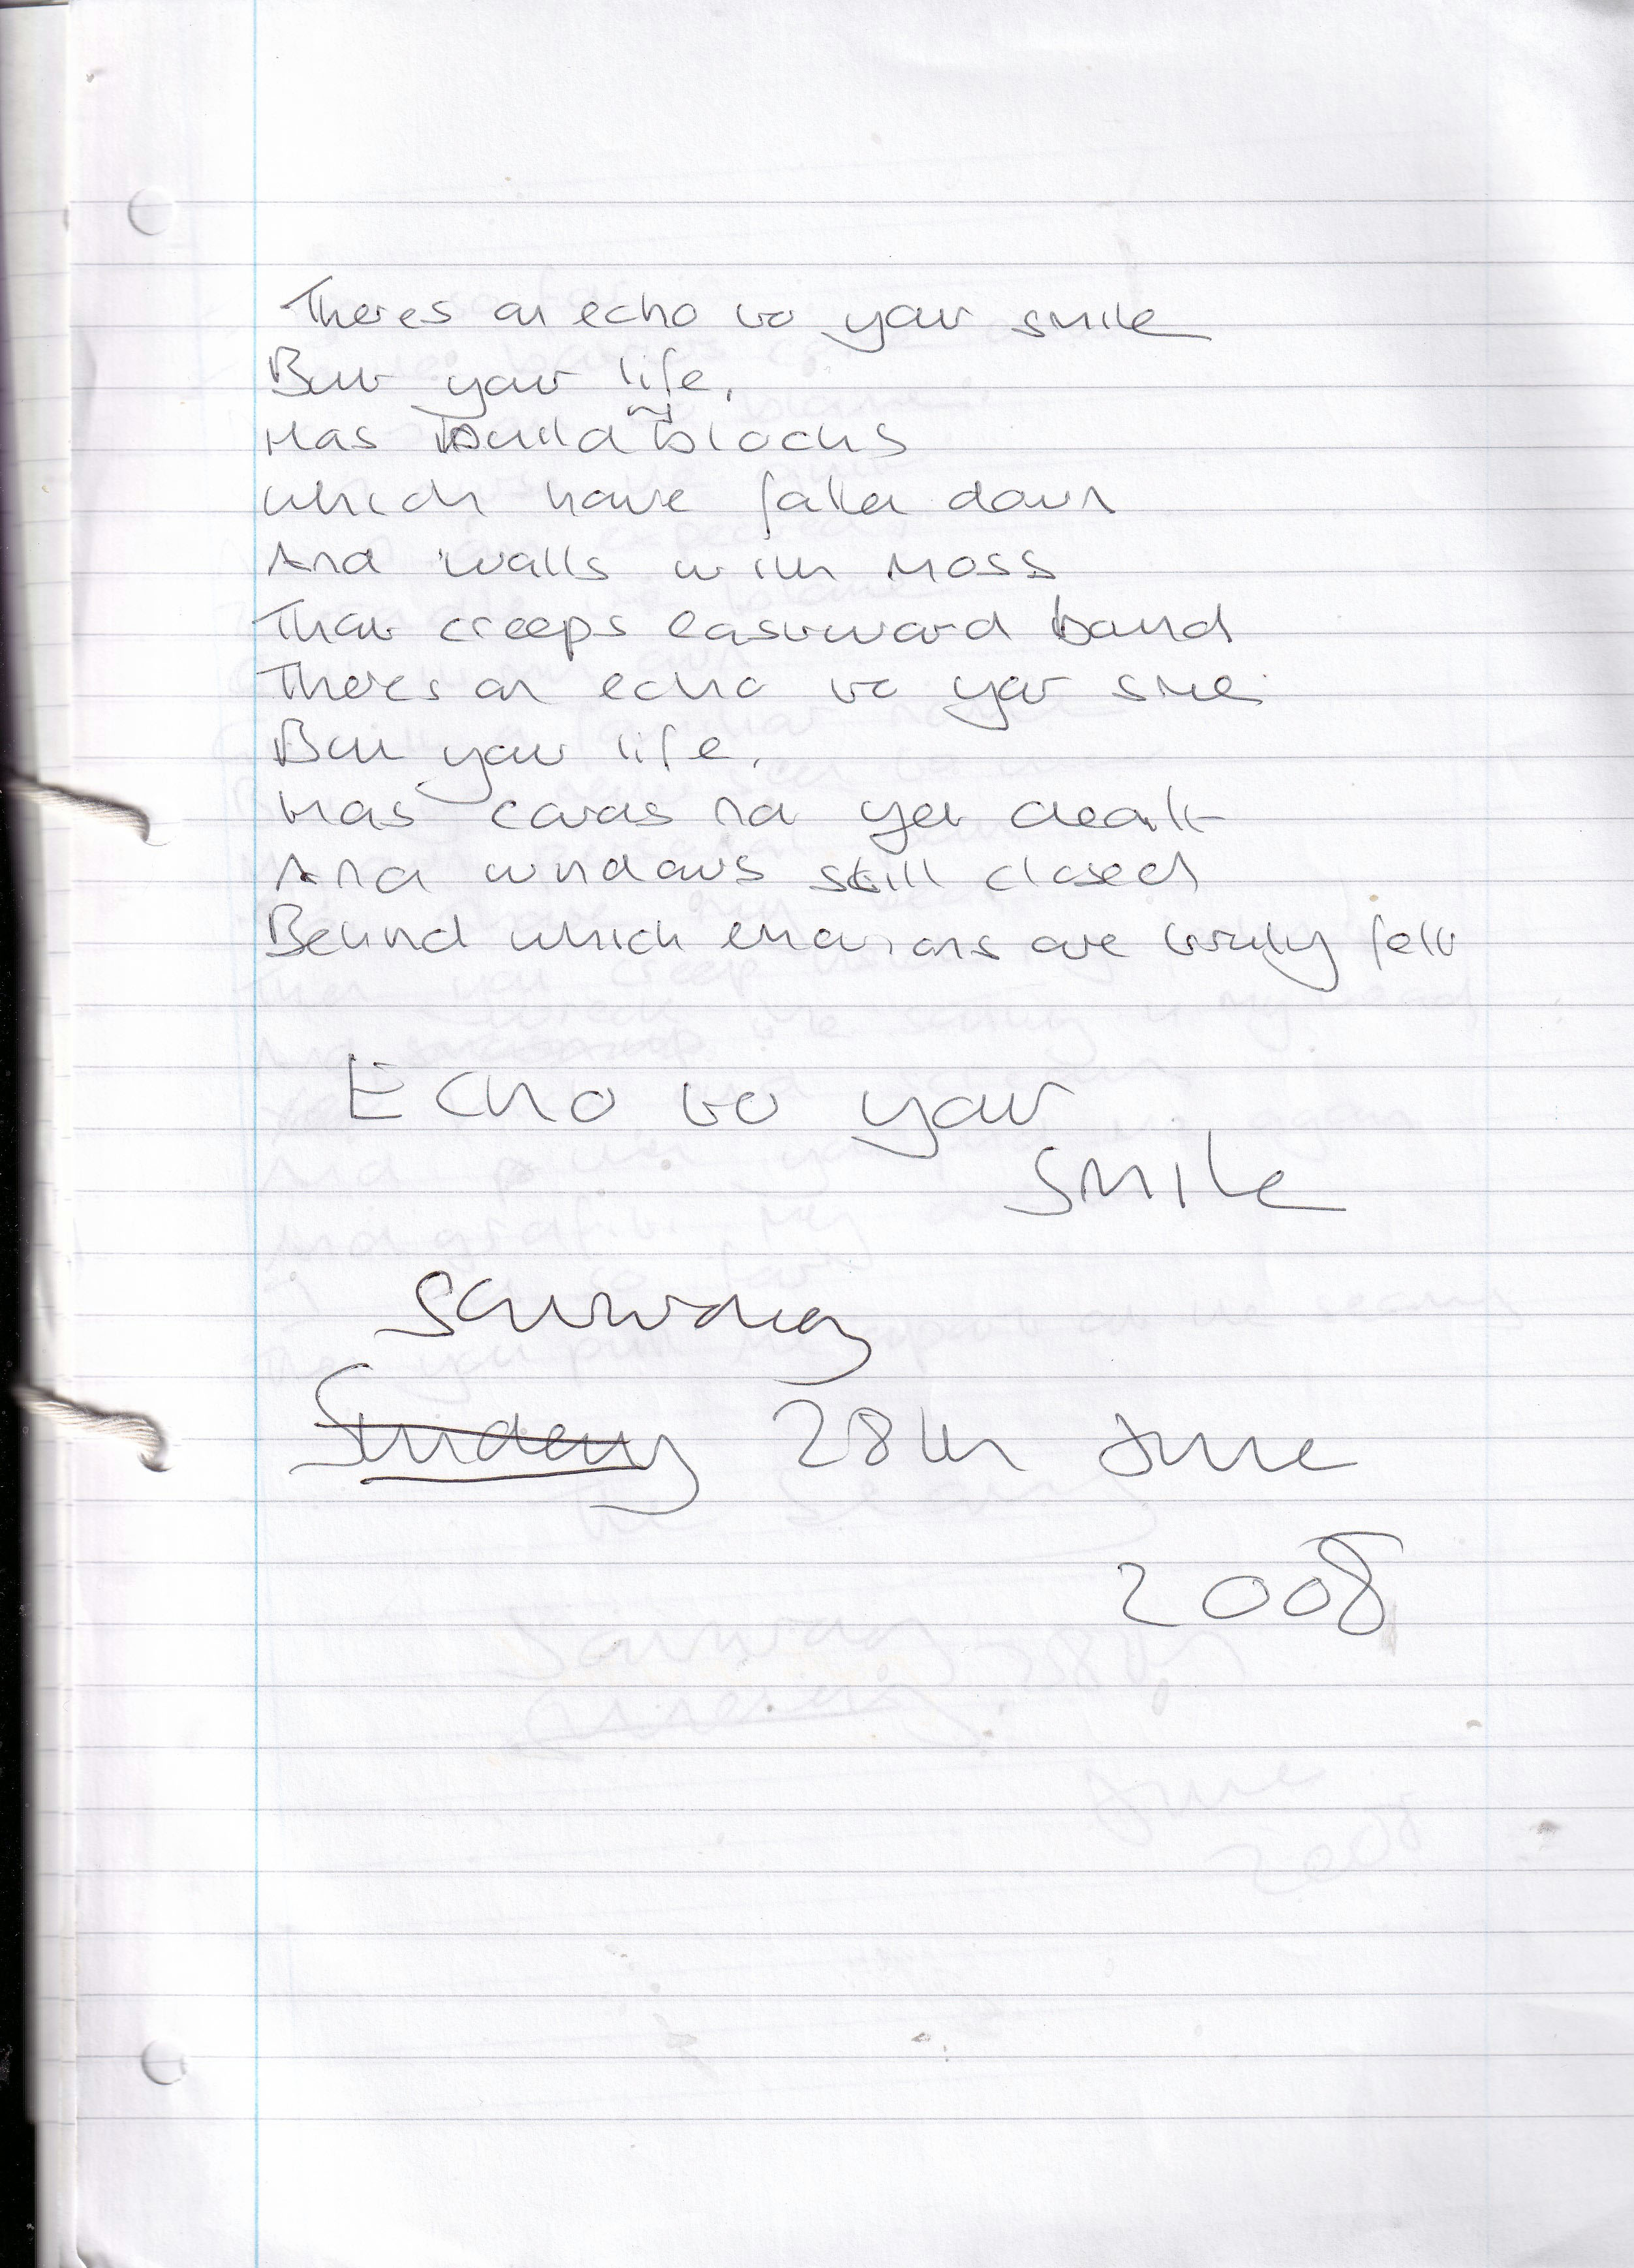 Theres an echo to your smile
But your life,
Has building blocks
which have fallen down
And walls with moss
That creeps eastward bound
Theres an echo to your smile
But your life,
Has cards not yet dealt
And windows still closed
Behind which emotions are truly felt
Echo to your
smile
Saturday
Sunday 28th June
2008